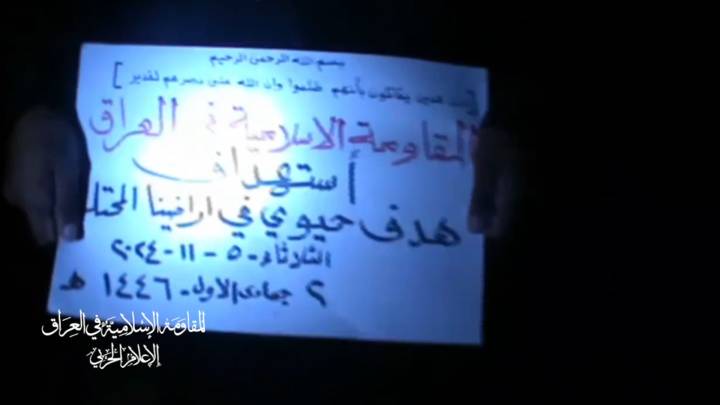 بسم الله الرحمن الرحيم
يقاتلون بأنهم ظلموا وان الله على نصرهم لقدير]
المقاومة الاسلامية في العراق
أستهداف
هدف حيوي في اراضينا المحتل
الثلاثاء - ٥ - ١١ - ٢٠٢٤
٢ جمادى الاول - ١٤٤٦ هـ
المقاومة الإسلامية في العراق
الإعلام الحربي